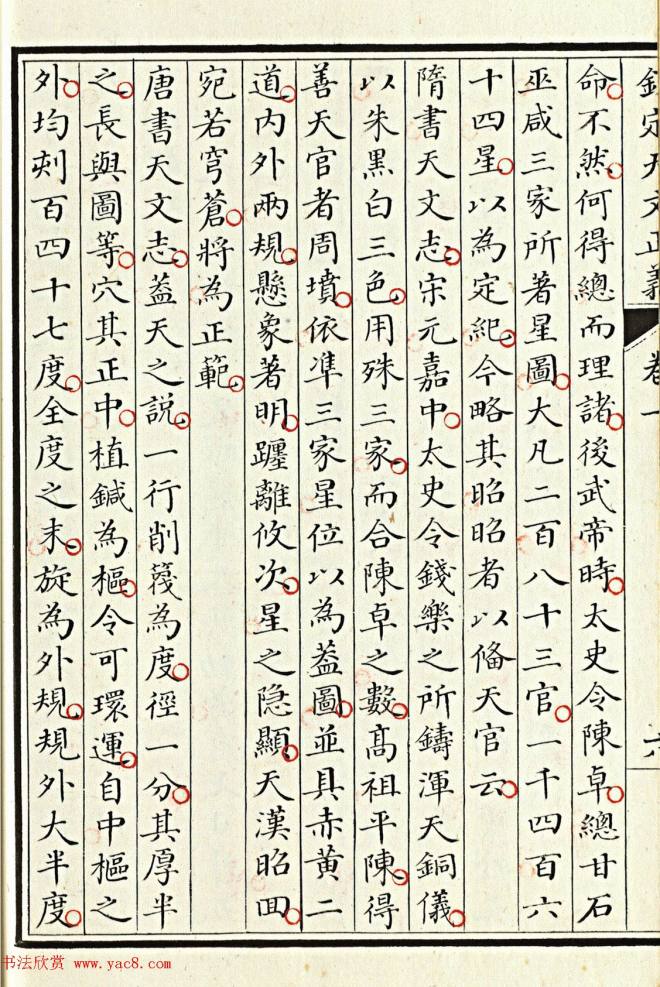 欽定天文正義 卷一 六
命不然何得總而理諸後武帝時太史令陳卓總甘石
巫咸三家所著星圖大凡二百八十三官一千四百六
十四星以為定紀今略其昭昭者以俻天官云
隋書天文志宋元嘉中太史令錢樂之所鑄渾天銅儀
以朱黑白三色用殊三家而合陳卓之數髙祖平陳得
善天官者周墳依凖三家星位以為葢圖並具赤黃二
道内外兩規懸象著明躔離攸次星之隐顯天漢昭囬
宛若穹蒼將為正範
唐書天文志葢天之說一行削篾為度徑一分其厚半
之長與圖等穴其正中植鍼為樞令可環運自中樞之
外均刾百四十七度全度之末旋為外規規外大半度
书法欣赏 www.yac8.com